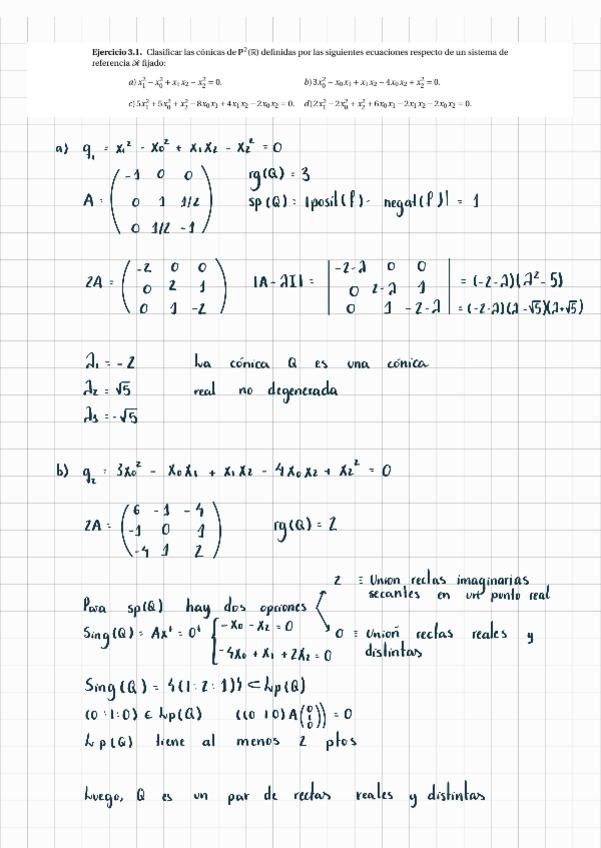 Ejercicio 3.1. Clasificar las cónicas de P²(ℝ) definidas por las siguientes ecuaciones respecto de un sistema de
referencia ℛ fijado:
a) x₁² − x₀² + x₁x₂ − x₂² = 0. b) 3x₀² − x₀x₁ + x₁x₂ − 4x₀x₂ + x₂² = 0.
c) 5x₁² + 5x₀² + x₂² − 8x₀x₁ + 4x₁x₂ − 2x₀x₂ = 0. d) 2x₁² − 2x₀² + x₂² + 6x₀x₁ − 2x₁x₂ − 2x₀x₂ = 0.
a) q₁ = x₁² - x₀² + x₁x₂ - x₂² = 0
-1 0 0 rg(Q) = 3
A = 0 1 1/2 sp(Q) = |posit(f) - negat(f)| = 1
0 1/2 -1
-2 0 0 -2-λ 0 0
2A = 0 2 1 |A-λI| = 0 2-λ 1 = (-2-λ)(λ²-5)
0 1 -2 0 1 -2-λ = (-2-λ)(λ-√5)(λ+√5)
λ₁ = -2 La cónica Q es una cónica
λ₂ = √5 real no degenerada
λ₃ = -√5
b) q₂ = 3x₀² - x₀x₁ + x₁x₂ - 4x₀x₂ + x₂² = 0
6 -1 -4
2A = -1 0 1 rg(Q) = 2
-4 1 2
2 ≡ Union rectas imaginarias
secantes en un punto real
Para sp(Q) hay dos opciones
0 ≡ Union rectas reales y
distintas
Sing(Q) = Axᵗ = 0ᵗ { -x₀ - x₂ = 0
-4x₀ + x₁ + 2x₂ = 0
Sing(Q) = {(1:2:1)} ⊂ Lp(Q)
(0:1:0) ∈ Lp(Q) ((0 1 0) A (0 1 0)) = 0
Lp(Q) tiene al menos 2 ptos
Luego, Q es un par de rectas reales y distintas